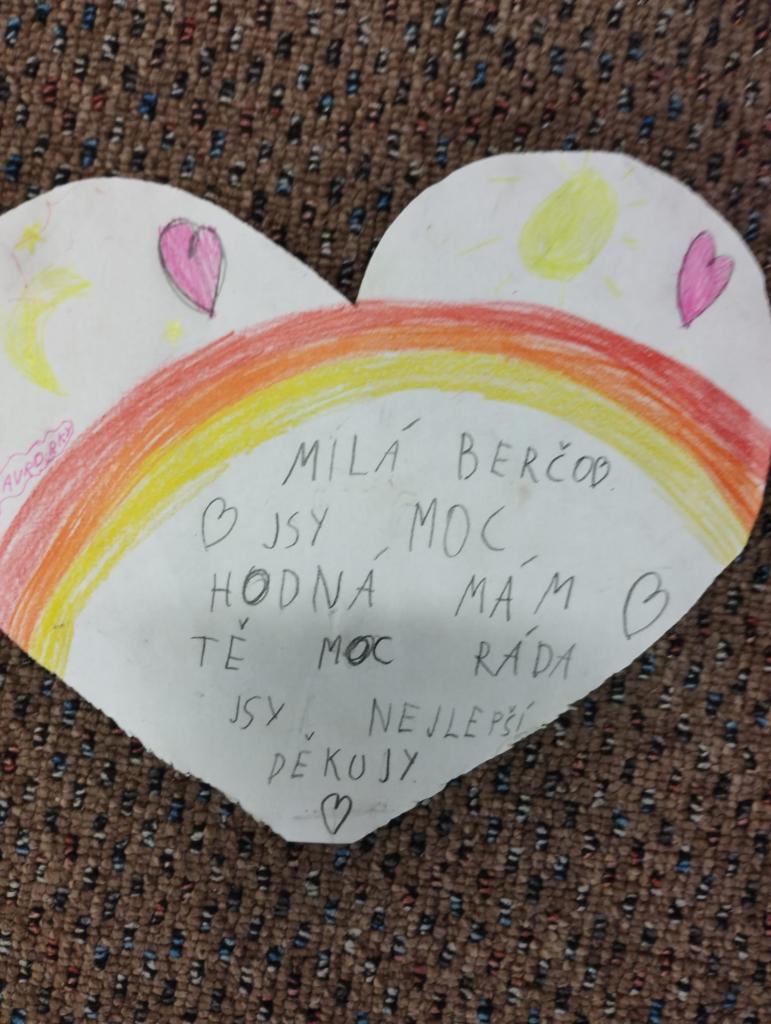 AURORKY
MILÁ BERČOB
JSY MOC
HODNÁ MÁM
TĚ MOC RÁDA
JSY NEJLEPŠÍ
DĚKUJY